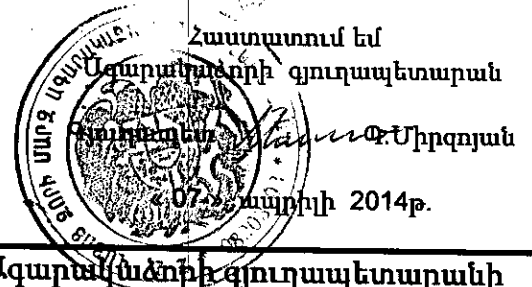 Հաստատում եմ
Ագարակաձորի գյուղապետարան
Գյուղապետ Գ.Միրզոյան
«07» ապրիլի 2014թ.
Ագարակաձորի գյուղապետարանի
ՁՈՐԻ ՄԱՐԶ